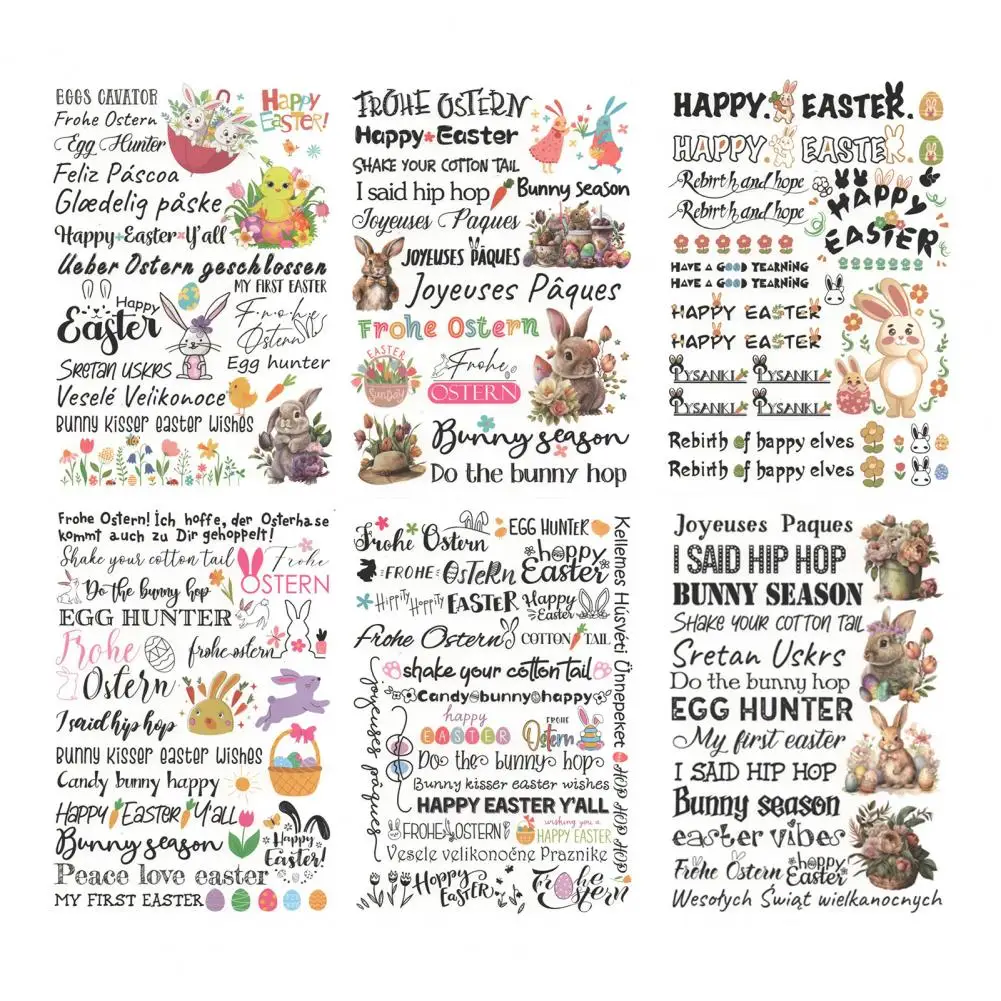 EGGS CAVATOR
Frohe Ostern
Egg Hunter
Happy
EASTER!
Feliz Páscoa
Glædelig påske
Happy Easter Y'all
Ueber Ostern geschlossen
MY FIRST EASTER
Happy
Easter
Frohe
Ostern
SRETAN USKRS
Egg hunter
Veselé Velikonoce
Bunny kisser easter wishes
FROHE OSTERN
Happy Easter
SHAKE YOUR COTTON TAIL
I said hip hop
Bunny season
Joyeuses Paques
JOYEUSES PÂQUES
Joyeuses Pâques
Frohe Ostern
EASTER
SUNDAY
Frohe
OSTERN
Bunny season
Do the bunny hop
HAPPY EASTER.
HAPPY EASTER
Rebirth and hope
Rebirth and hope
HAPPY
EASTER
HAVE A GOOD YEARNING
HAVE A GOOD YEARNING
HAPPY EASTER
HAPPY EASTER
PYSANKI PYSANKI
PYSANKI PYSANKI
Rebirth of happy elves
Rebirth of happy elves
Frohe Ostern! Ich hoffe, der Osterhase
kommt auch zu Dir gehoppelt!
Shake your cotton tail
Frohe
OSTERN
Do the bunny hop
EGG HUNTER
Frohe
Ostern
frohe ostern
I said hip hop
Bunny kisser easter wishes
Candy bunny happy
HAPPY EASTER Y'ALL
Bunny season
Happy
Easter!
Peace love easter
MY FIRST EASTER
Frohe Ostern
EGG HUNTER
FROHE OSTERN
hoppy
Easter
Hippity Hoppity EASTER
Happy
Easter
Frohe Ostern
COTTON TAIL
shake your cotton tail
Candy bunny happy
happy
EASTER
FROHE
Ostern
Do the bunny hop
Bunny kisser easter wishes
HAPPY EASTER Y'ALL
FROHE OSTERN
wishing you a
HAPPY EASTER
Vesele velikonočne Praznike
Hoppy
EASTER
Frohe
Ostern
joyeuses pâques
Kellemes Húsvéti Ünnepeket
HOP HOP HOP
Joyeuses Paques
I SAID HIP HOP
BUNNY SEASON
SHAKE YOUR COTTON TAIL
Sretan Uskrs
Do the bunny hop
EGG HUNTER
My first easter
I SAID HIP HOP
Bunny season
easter vibes
Frohe Ostern
hoppy
Easter
Wesołych Świąt wielkanocnych